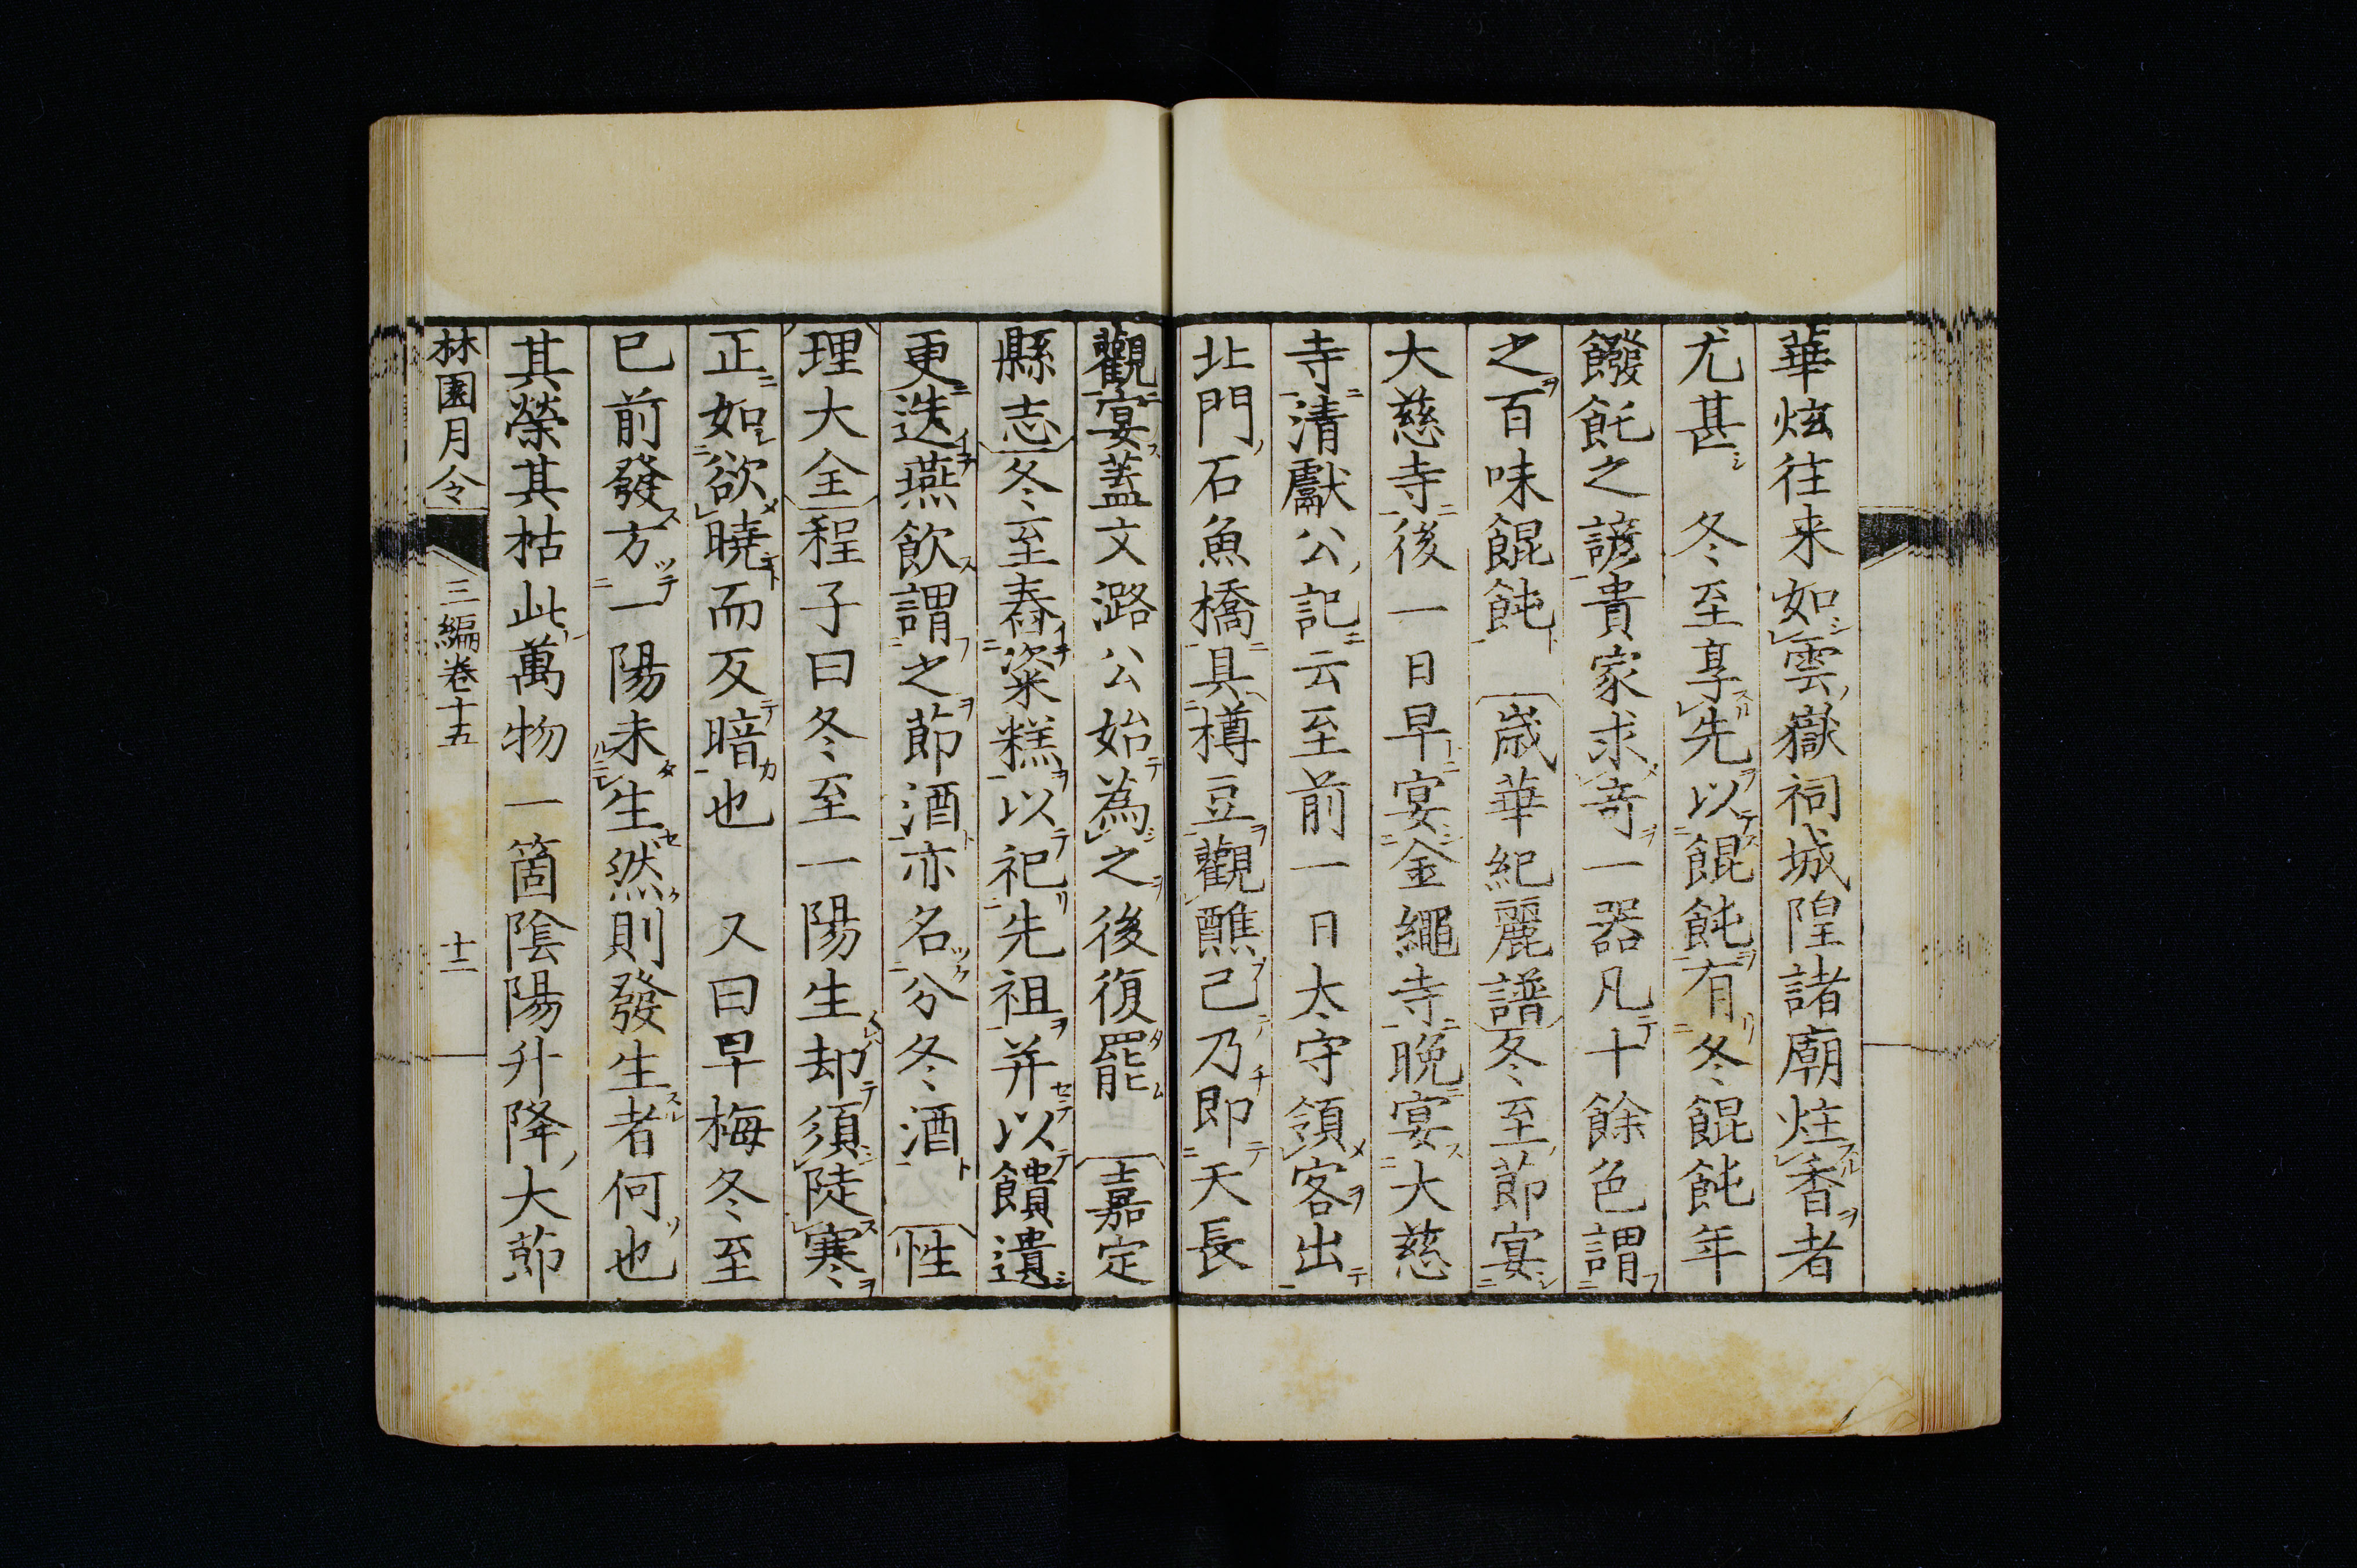 華炫往来如雲嶽祠城隍諸廟炷香者
尤甚　冬至享先以餛飩有冬餛飩年
餺飥之諺貴家求奇一器凡十餘色謂
之百味餛飩　歳華紀麗譜冬至節宴
大慈寺後一日早宴金繩寺晩宴大慈
寺清獻公記云至前一日太守領客出
北門石魚橋具樽豆觀醮己乃即天長
觀宴蓋文潞公始為之後復罷　嘉定
縣志冬至舂粢糕以祀先祖并以饋遺
更迭燕飲謂之節酒亦名分冬酒　性
理大全程子曰冬至一陽生却須陡寒
正如欲曉而反暗也　又曰早梅冬至
已前發方一陽未生然則發生者何也
其榮其枯此萬物一箇陰陽升降大節
林園月令　三編卷十五　十二